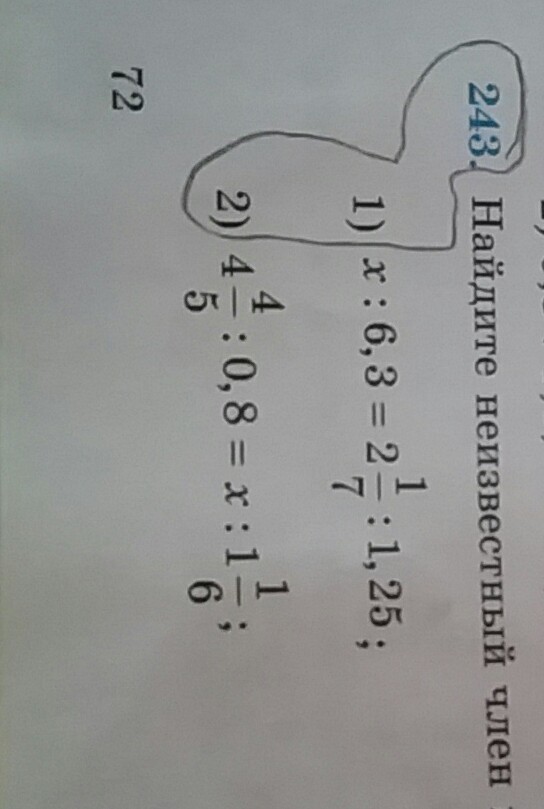 243. Найдите неизвестный член
1) x : 6,3 = 2 1/7 : 1,25;
2) 4 4/5 : 0,8 = x : 1 1/6;
72